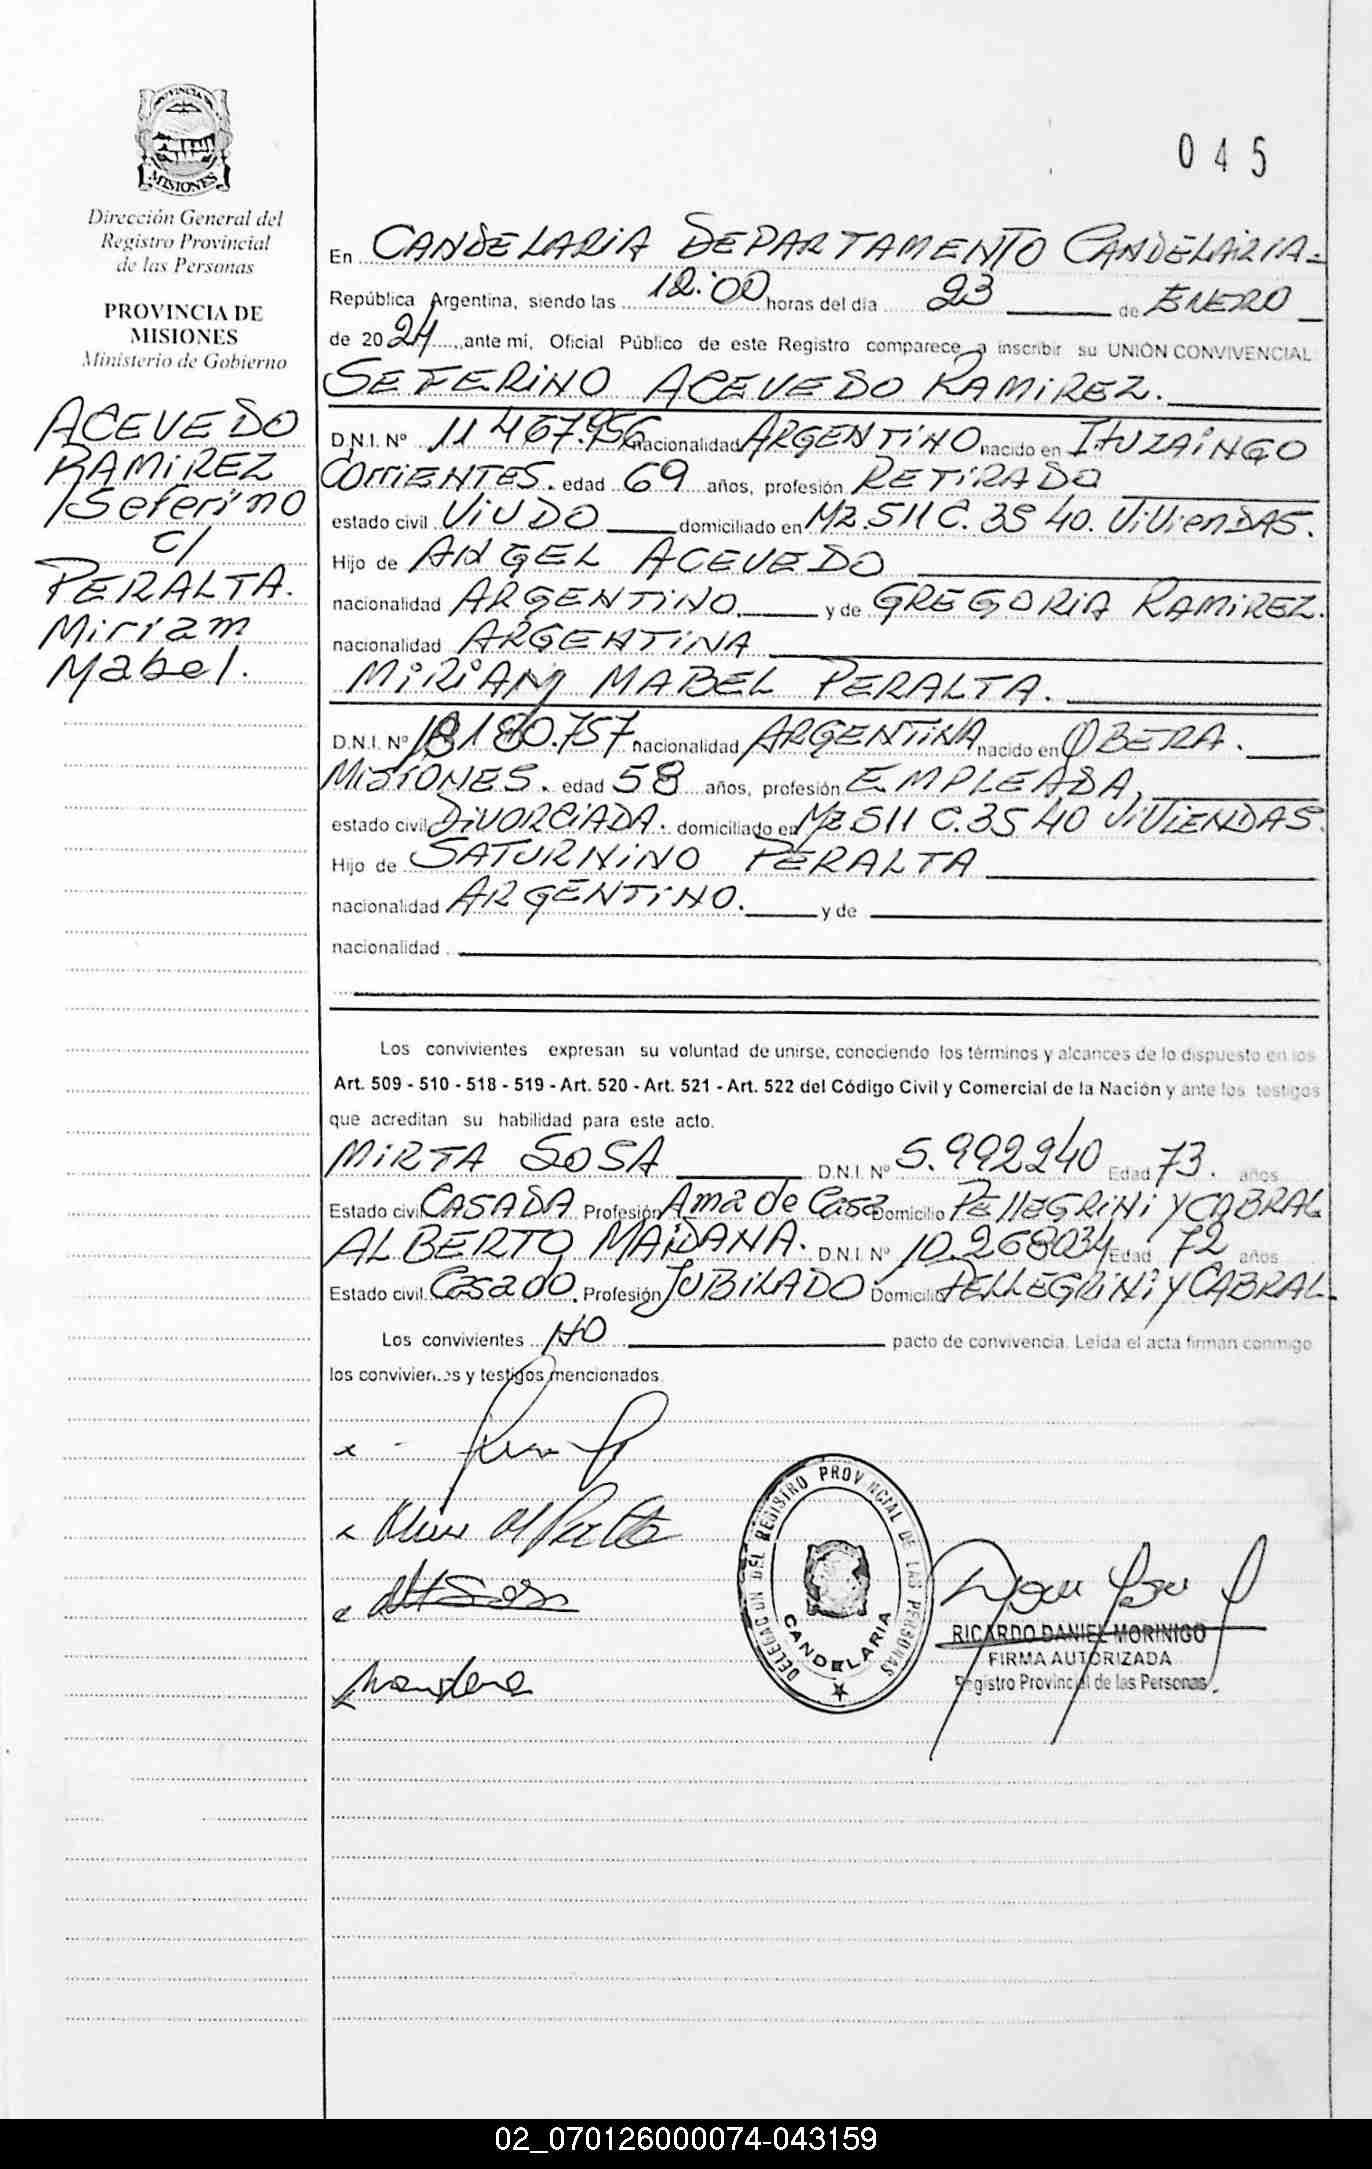 PROVINCIA
MISIONES
Dirección General del
Registro Provincial
de las Personas
PROVINCIA DE
MISIONES
Ministerio de Gobierno
ACEVEDO
RAMIREZ
Seferino
c/
PERALTA.
Miriam
Mabel.
045
En CANDELARIA DEPARTAMENTO CANDELARIA-
República Argentina, siendo las 12:00 horas del día 23 de ENERO
de 2024, ante mí, Oficial Público de este Registro comparece a inscribir su UNIÓN CONVIVENCIAL
SEFERINO ACEVEDO RAMIREZ.
D.N.I. Nº 11467.956 nacionalidad ARGENTINO nacido en ITUZAINGO
CORRIENTES. edad 69 años, profesión RETIRADO
estado civil VIUDO domiciliado en MZ.511 C.35 40. ViViENDAS.
Hijo de ANGEL ACEVEDO
nacionalidad ARGENTINO. y de GREGORIA RAMIREZ.
nacionalidad ARGENTINA
MIRIAM MABEL PERALTA.
D.N.I. Nº 18180.757 nacionalidad ARGENTINA nacido en OBERA.
MISIONES. edad 58 años, profesión EMPLEADA,
estado civil DIVORCIADA. domiciliado en MZ 511 C.35 40 VIVIENDAS.
Hijo de SATURNINO PERALTA
nacionalidad ARGENTINO. y de
nacionalidad
Los convivientes expresan su voluntad de unirse, conociendo los términos y alcances de lo dispuesto en los
Art. 509 - 510 - 518 - 519 - Art. 520 - Art. 521 - Art. 522 del Código Civil y Comercial de la Nación y ante los testigos
que acreditan su habilidad para este acto.
MIRTA SOSA D.N.I. Nº 5.992240 Edad 73. años
Estado civil CASADA Profesión Ama de Casa Domicilio PELLEGRINI Y CABRAL
ALBERTO MAIDANA. D.N.I. Nº 10.268034 Edad 72 años
Estado civil. Casado. Profesión JUBILADO Domicilio PELLEGRINI Y CABRAL
Los convivientes NO pacto de convivencia. Leída el acta firman conmigo
los convivientes y testigos mencionados.
DELEGACION DEL REGISTRO PROVINCIAL DE LAS PERSONAS
CANDELARIA
RICARDO DANIEL MORINIGO
FIRMA AUTORIZADA
Registro Provincial de las Personas
02_070126000074-043159